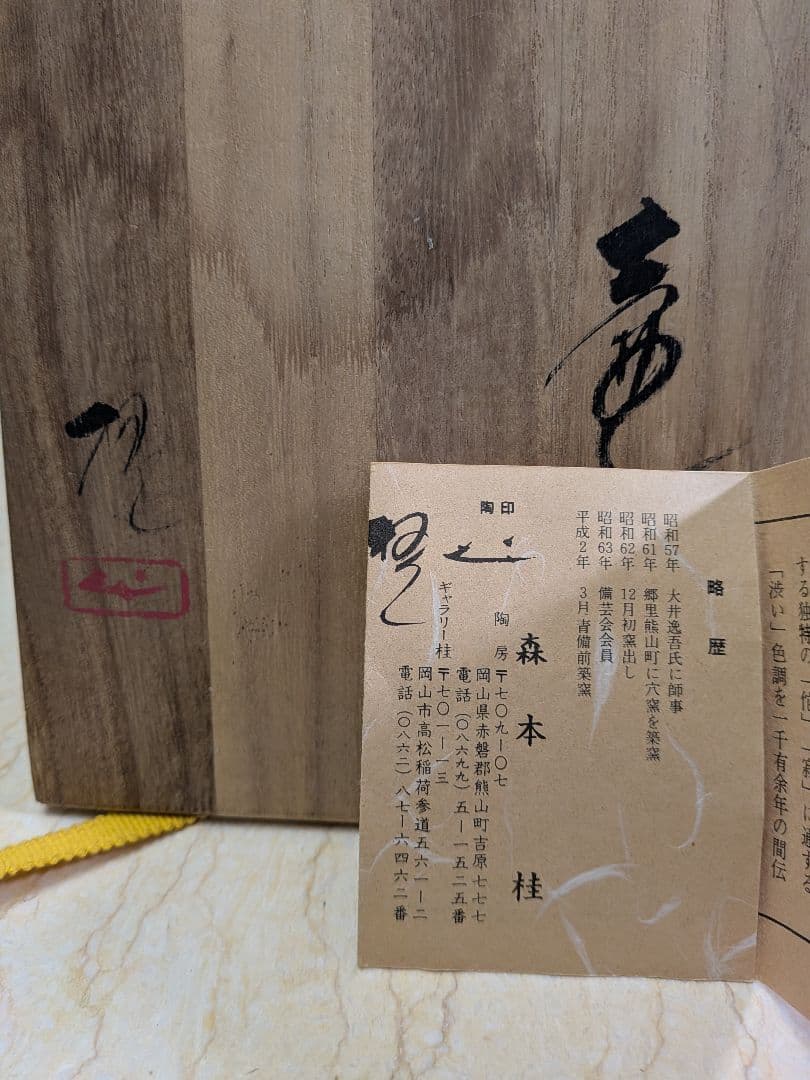 壷
桂
略歴
昭和57年 大井逸吾氏に師事
昭和61年 郷里熊山町に穴窯を築窯
昭和62年 12月初窯出し
昭和63年 備芸会会員
平成2年 3月青備前築窯
陶印
森本 桂
陶房
〒七〇九―〇七
岡山県赤磐郡熊山町吉原七七七
電話（〇八六九九）五―一五二五番
ギャラリー桂
〒七〇一―一三
岡山市高松稲荷参道五六一―二
電話（〇八六二）八七―六四六二番
桂
「渋い」色調を一千有余年の間伝